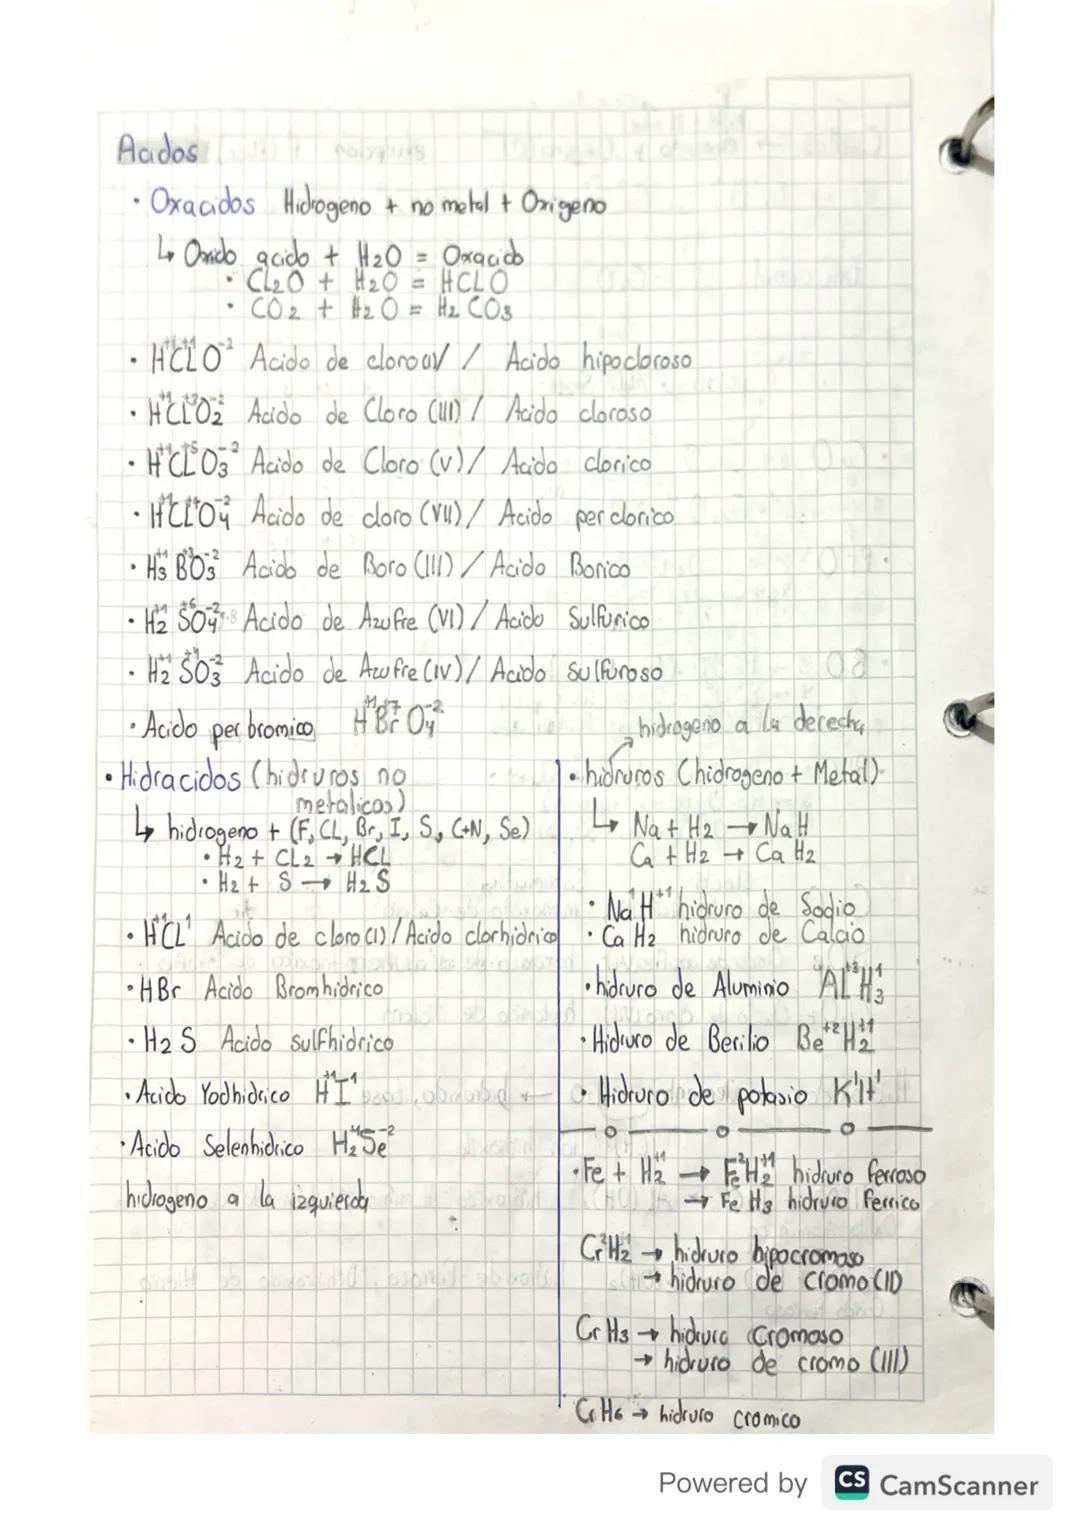 Acidos
· Oxacidos Hidrogeno + no metal + Oxigeno
↳ Oxido acido + H2O = Oxacido
· CL2O + H2O = HCLO
· CO2 + H2O = H2 CO3
· H⁺¹CL⁺¹O⁻² Acido de cloro / Acido hipocloroso
· H⁺¹CL⁺³O2⁻² Acido de Cloro (III) / Acido cloroso
· H⁺¹CL⁺⁵O3⁻² Acido de Cloro (V) / Acido clorico
· HCLO4⁻² Acido de cloro (VII) / Acido perclorico
· H3⁺¹ B⁺³O3⁻² Acido de Boro (III) / Acido Borico
· H2⁺¹ S⁺⁶O4⁻² Acido de Azufre (VI) / Acido Sulfurico
· H2⁺¹ S⁺⁴O3⁻² Acido de Azufre (IV) / Acido sulfuroso
· Acido perbromico H⁺¹Br⁺⁷O4⁻²
· Hidracidos (hidruros no
metalicos)
↳ hidrogeno + (F, CL, Br, I, S, C+N, Se)
· H2 + CL2 → HCL
· H2 + S → H2S
· H⁺¹CL¹ Acido de cloro (I) / Acido clorhidrico
· HBr Acido Bromhidrico
· H2S Acido sulfhidrico
· Acido Yodhidrico H⁺¹I⁻¹
· Acido Selenhidrico H2⁺¹Se⁻²
hidrogeno a la izquierda
hidrogeno a la derecha
· hidruros (hidrogeno + Metal)
↳ Na + H2 → NaH
Ca + H2 → CaH2
· Na¹H⁺¹ hidruro de Sodio
· CaH2 hidruro de Calcio
· hidruro de Aluminio AL⁺³H3⁺¹
· Hidruro de Berilio Be⁺²H2⁺¹
· Hidruro de potasio K¹H¹
· Fe + H2⁺¹ → Fe²H2⁺¹ hidruro ferroso
→ FeH3 hidruro ferrico
Cr²H2⁺¹ → hidruro hipocromoso
→ hidruro de cromo (II)
CrH3 → hidruro cromoso
→ hidruro de cromo (III)
CrH6 → hidruro cromico
Powered by CS CamScanner